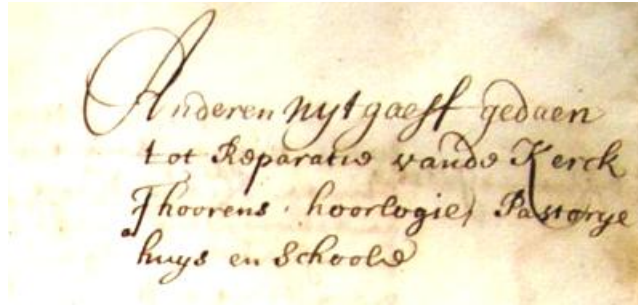 Anderen uytgaeff gedaen
tot Reparatie vande Kerck
Thoorens, hoorlogie, Pastorye
huys en Schoole